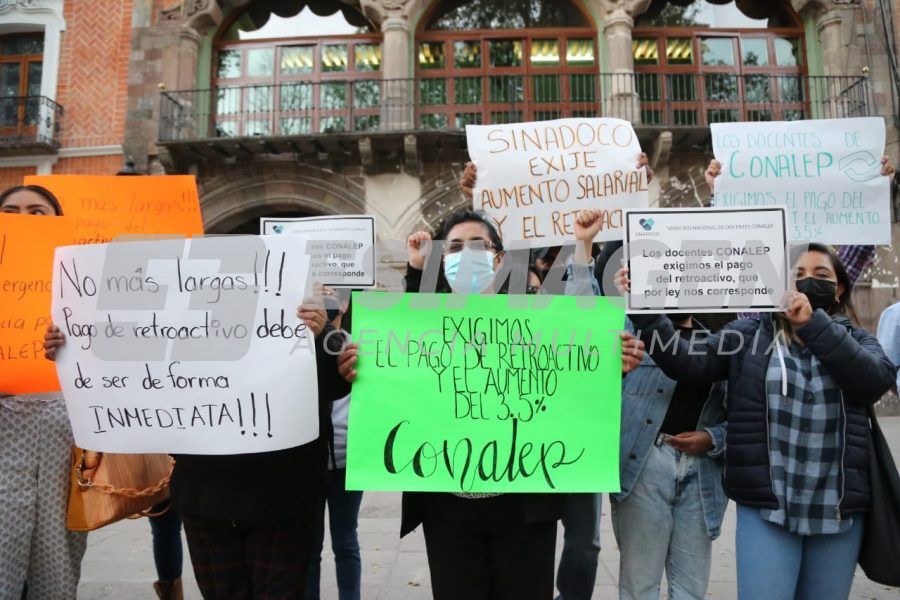 más largas!!!
pago del
SINADOCO
No más largas!!!
Pago de retroactivo debe
de ser de forma
INMEDIATA!!!
CONALEP
el retroactivo, que
corresponde
EXIGIMOS
EL PAGO DE RETROACTIVO
Y EL AUMENTO
DEL 3.5%
Conalep
SINADOCO
EXIJE
AUMENTO SALARIAL
Y EL RETROACTIVO
SINDICATO NACIONAL DE DOCENTES CONALEP
SINADOCO
Los docentes CONALEP
exigimos el pago
del retroactivo, que
por ley nos corresponde
LOS DOCENTES DE
CONALEP
EXIGIMOS EL PAGO DEL
RETROACTIVO Y EL AUMENTO
3.5%
ESIMAGEN
AGENCIA MULTIMEDIA